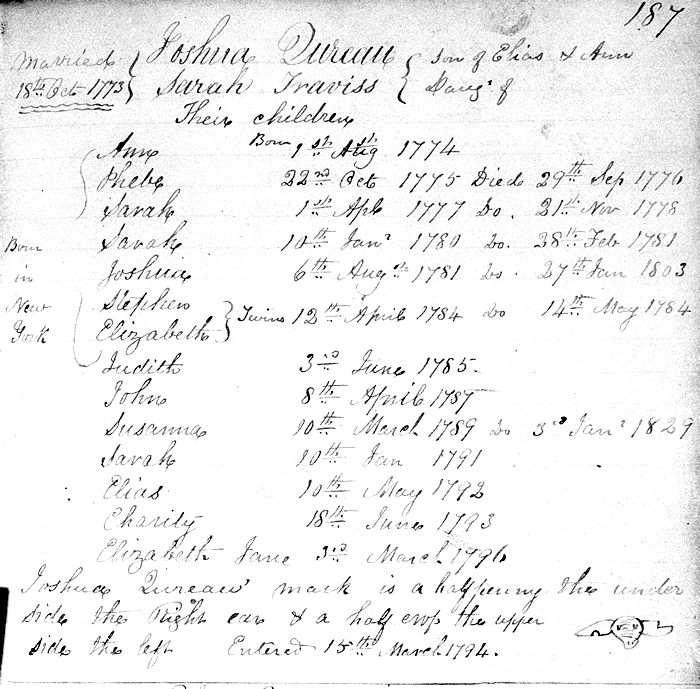 187
Married { Joshua Qureau { son of Elias & Ann
18th Oct 1773 { Sarah Traviss { Daugr of
Their children
Ann Born 1st Aug 1774
Phebe 22nd Oct 1775 Died 29th Sep 1776
Sarah 1st Apl 1777 Do. 21st Nov 1778
Born Sarah 10th Janr 1780 Do. 28th Feb 1781
in Joshua 6th Augst 1781 do. 27th Jan 1803
New Stephen } Twins 12th April 1784 do 14th May 1784
York Elizabeth }
Judith 3rd June 1785.
John 8th April 1787
Susanna 10th March 1789 Do 3rd Janr 1829
Sarah 10th Jan 1791
Elias 10th May 1792
Charity 18th June 1793
Elizabeth Jane 3rd March 1796
Joshua Qureau' mark is a halfpenny the under
side the Right ear & a half crop the upper
side the left Entered 15th March 1794.